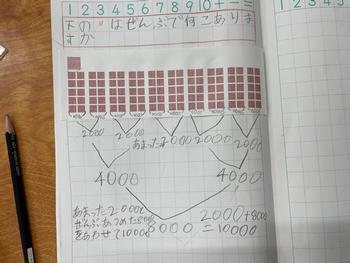 1 2 3 4 5 6 7 8 9 10 + − =
下の
はぜんぶで何こありま
すか
2000 2000 あまった2000 2000 2000
4000 4000
あまった2000と
ぜんぶあつめた8000
をあわせて10000
8000
2000+8000
=10000